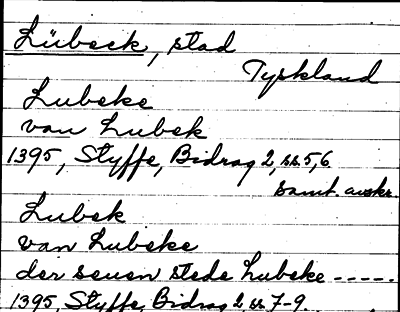 Lübeck, stad
Tyskland
Lubeke
van Lubek
1395, Styffe, Bidrag 2, ss. 5, 6
samt. avskr.
Lubek
van Lubeke
der seuen stede Lubeke -----
1395, Styffe, Bidrag 2, ss. 7-9.